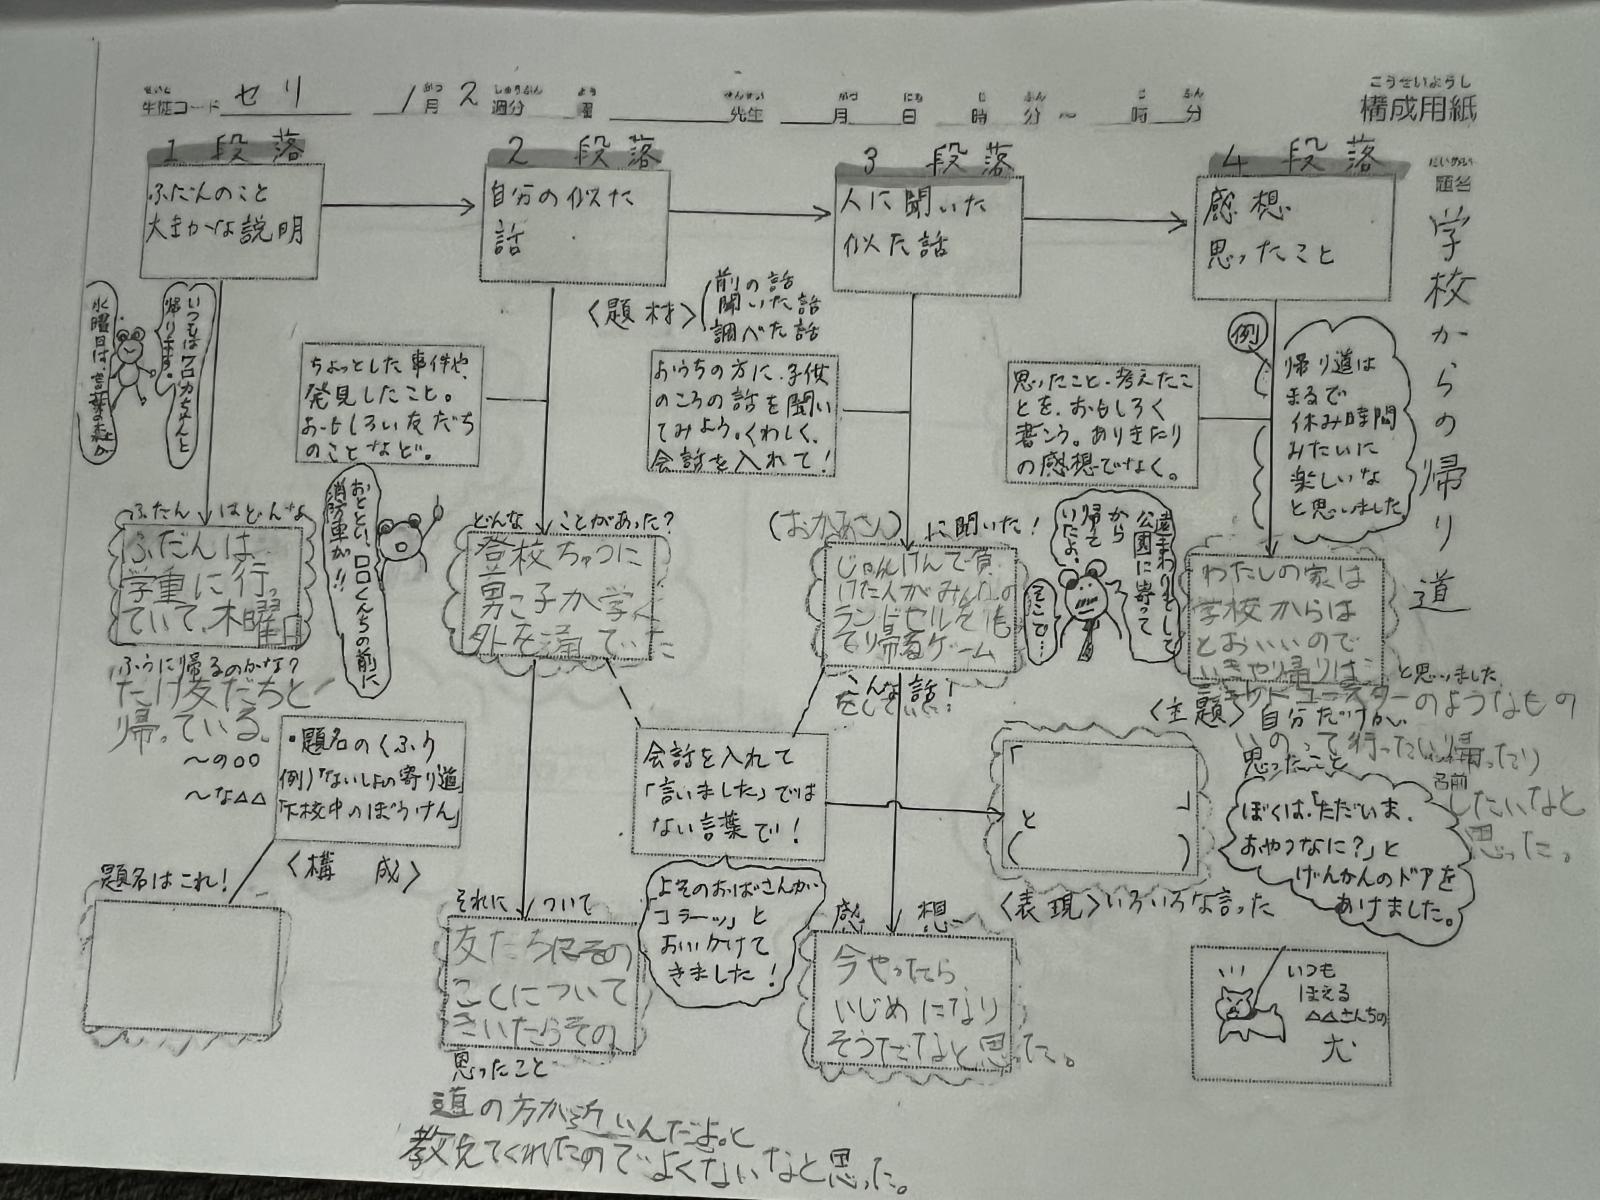 こうせいようし
構成用紙
せいと
生徒コード セリ
がつ
1月
しゅうぶん
2週分
よう
曜
せんせい
先生
がつ
月
にち
日
じ
時
ふん
分～
じ
時
ふん
分
だいめい
題名
学校からの帰り道
1 段落
ふだんのこと
大まかな説明
2 段落
自分の似た
話
3 段落
人に聞いた
似た話
4 段落
感想
思ったこと
いつもはクロカちゃんと
帰ります。
水曜日は、言葉の森へ
ちょっとした事件や、
発見したこと。
おもしろい友だち
のことなど。
〈題材〉
前の話
聞いた話
調べた話
おうちの方に、子供
のころの話を聞い
てみよう。くわしく、
会話を入れて!
思ったこと、考えたこ
とを、おもしろく
書こう。ありきたり
の感想でなく。
例
帰り道は
まるで
休み時間
みたいに
楽しいな
と思いました
ふだん はどんな
ふだんは
学童に行っ
ていて、木曜日
ふうに帰るのかな?
だけ友だちと
帰っている。
おととい、ロロくんちの前に
消防車が!!
どんな ことがあった?
登校ちゅうに
男こ子が学く
外を通っていた
(おかあさん)に聞いた!
じゃんけんで負
けた人がみんなの
ランドセルを
帰るゲーム
をして
こんな話!
遠まわりをして
公園に寄って
から
帰って
いたよ。
そこで…
わたしの家は
学校からは
とおいいので
いきや帰りは
と思いました
〈主題〉自分だけが
思ったこと
のようなもの
のって行ったい帰ったり
したいなと
思った。
名前
・題名のくふう
例)「ないしょの寄り道」
「下校中のぼうけん」
〜の○○
〜な△△
〈構成〉
題名はこれ!
会話を入れて
「言いました」では
ない言葉で!
「
」
と
( )
〈表現〉いろいろな言った
ぼくは、「ただいま、
おやつなに?」と
げんかんのドアを
あけました。
よそのおばさんが
「コラーッ」と
おいかけて
きました!
それに ついて
友だちにその
ことについて
きいたらその
思ったこと
道の方が近いんだよ。と
教えてくれたのでよくないなと思った。
感想
今やったら
いじめになり
そうだなと思った。
いつも
ほえる
△△さんちの
犬